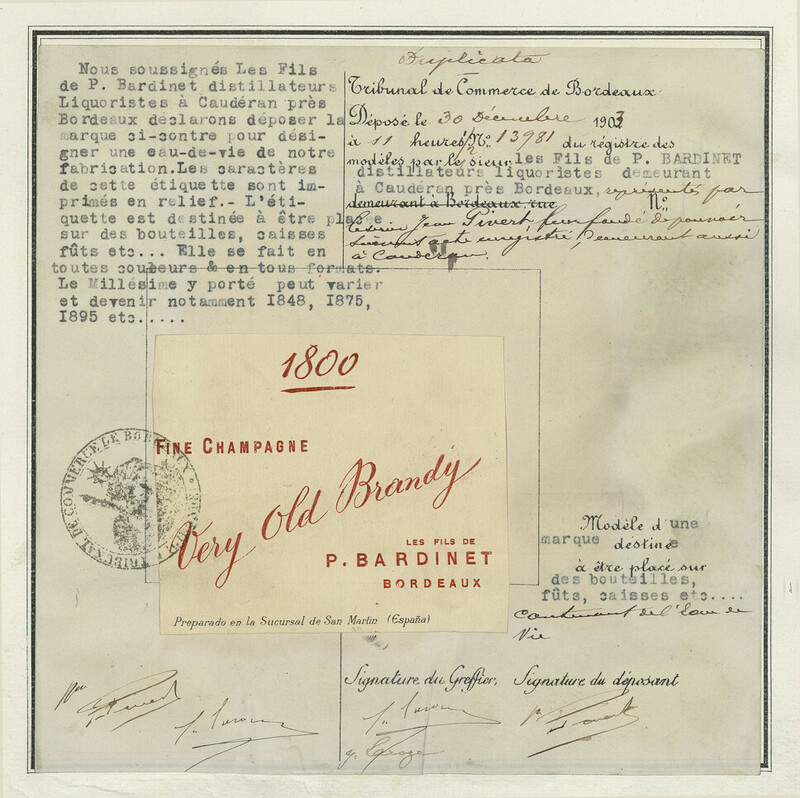 Nous soussignés Les Fils
de P. Bardinet distillateurs
Liquoristes à Caudéran près
Bordeaux déclarons déposer la
marque ci-contre pour dési-
gner une eau-de-vie de notre
fabrication.Les caractères
de cette étiquette sont im-
primés en relief.- L'éti-
quette est destinée à être pla
sur des bouteilles, caisses
fûts etc... Elle se fait en
toutes couleurs & en tous formats.
Le Millésime y porté peut varier
et devenir notamment I848, I875,
I895 etc.....
Duplicata
Tribunal de Commerce de Bordeaux
Déposé le 30 Décembre 1903
à 11 heures 1/2 No. 13981 du régistre des
modèles par le sieur les Fils de P. BARDINET
distillateurs liquoristes demeurant
à Caudéran près Bordeaux, représentés par
demeurant à Bordeaux, rue No.
Jean Pivert leur fondé de pouvoir
suivant acte enregistré, demeurant aussi
à Caudéran.
1800
FINE CHAMPAGNE
Very Old Brandy
LES FILS DE
P. BARDINET
BORDEAUX
Preparado en la Sucursal de San Martin (España)
TRIBUNAL DE COMMERCE DE BORDEAUX
Modèle d'une
marque destinée
à être placé sur
des bouteilles,
fûts, caisses etc....
contenant de l'Eau de
Vie
Signature du Greffier, Signature du déposant